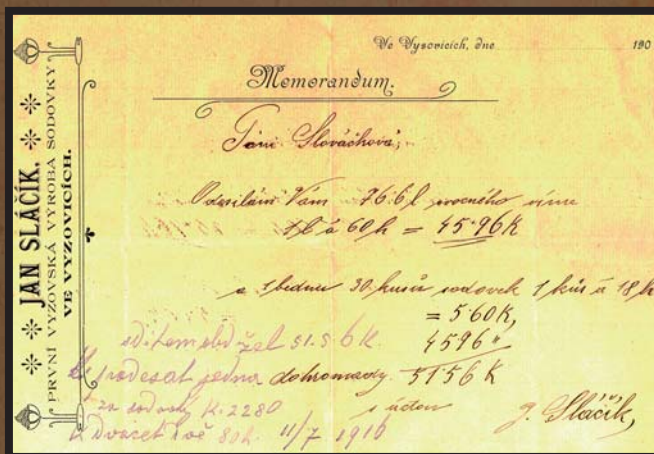 JAN SLÁČIK.
PRVNÍ VYZOVSKÁ VÝROBA SODOVKY
VE VYZOVICÍCH.
Ve Vyzovicích, dne 190
Memorandum.
Paní Slováčková,
Odesílám Vám 76.6 l ovocného vína
1 l á 60 h = 45.96 K
a 1 bednu 30 kusů sodovek 1 kus á 18 h
= 5.60 K,
4596 "
dohromady. 5156 K
s úctou J. Sláčik,
sditem obdržel 51.56 K.
padesát jedna
za sodovky K. 2280
K dvacet dvě 80 h. 11/7 1916